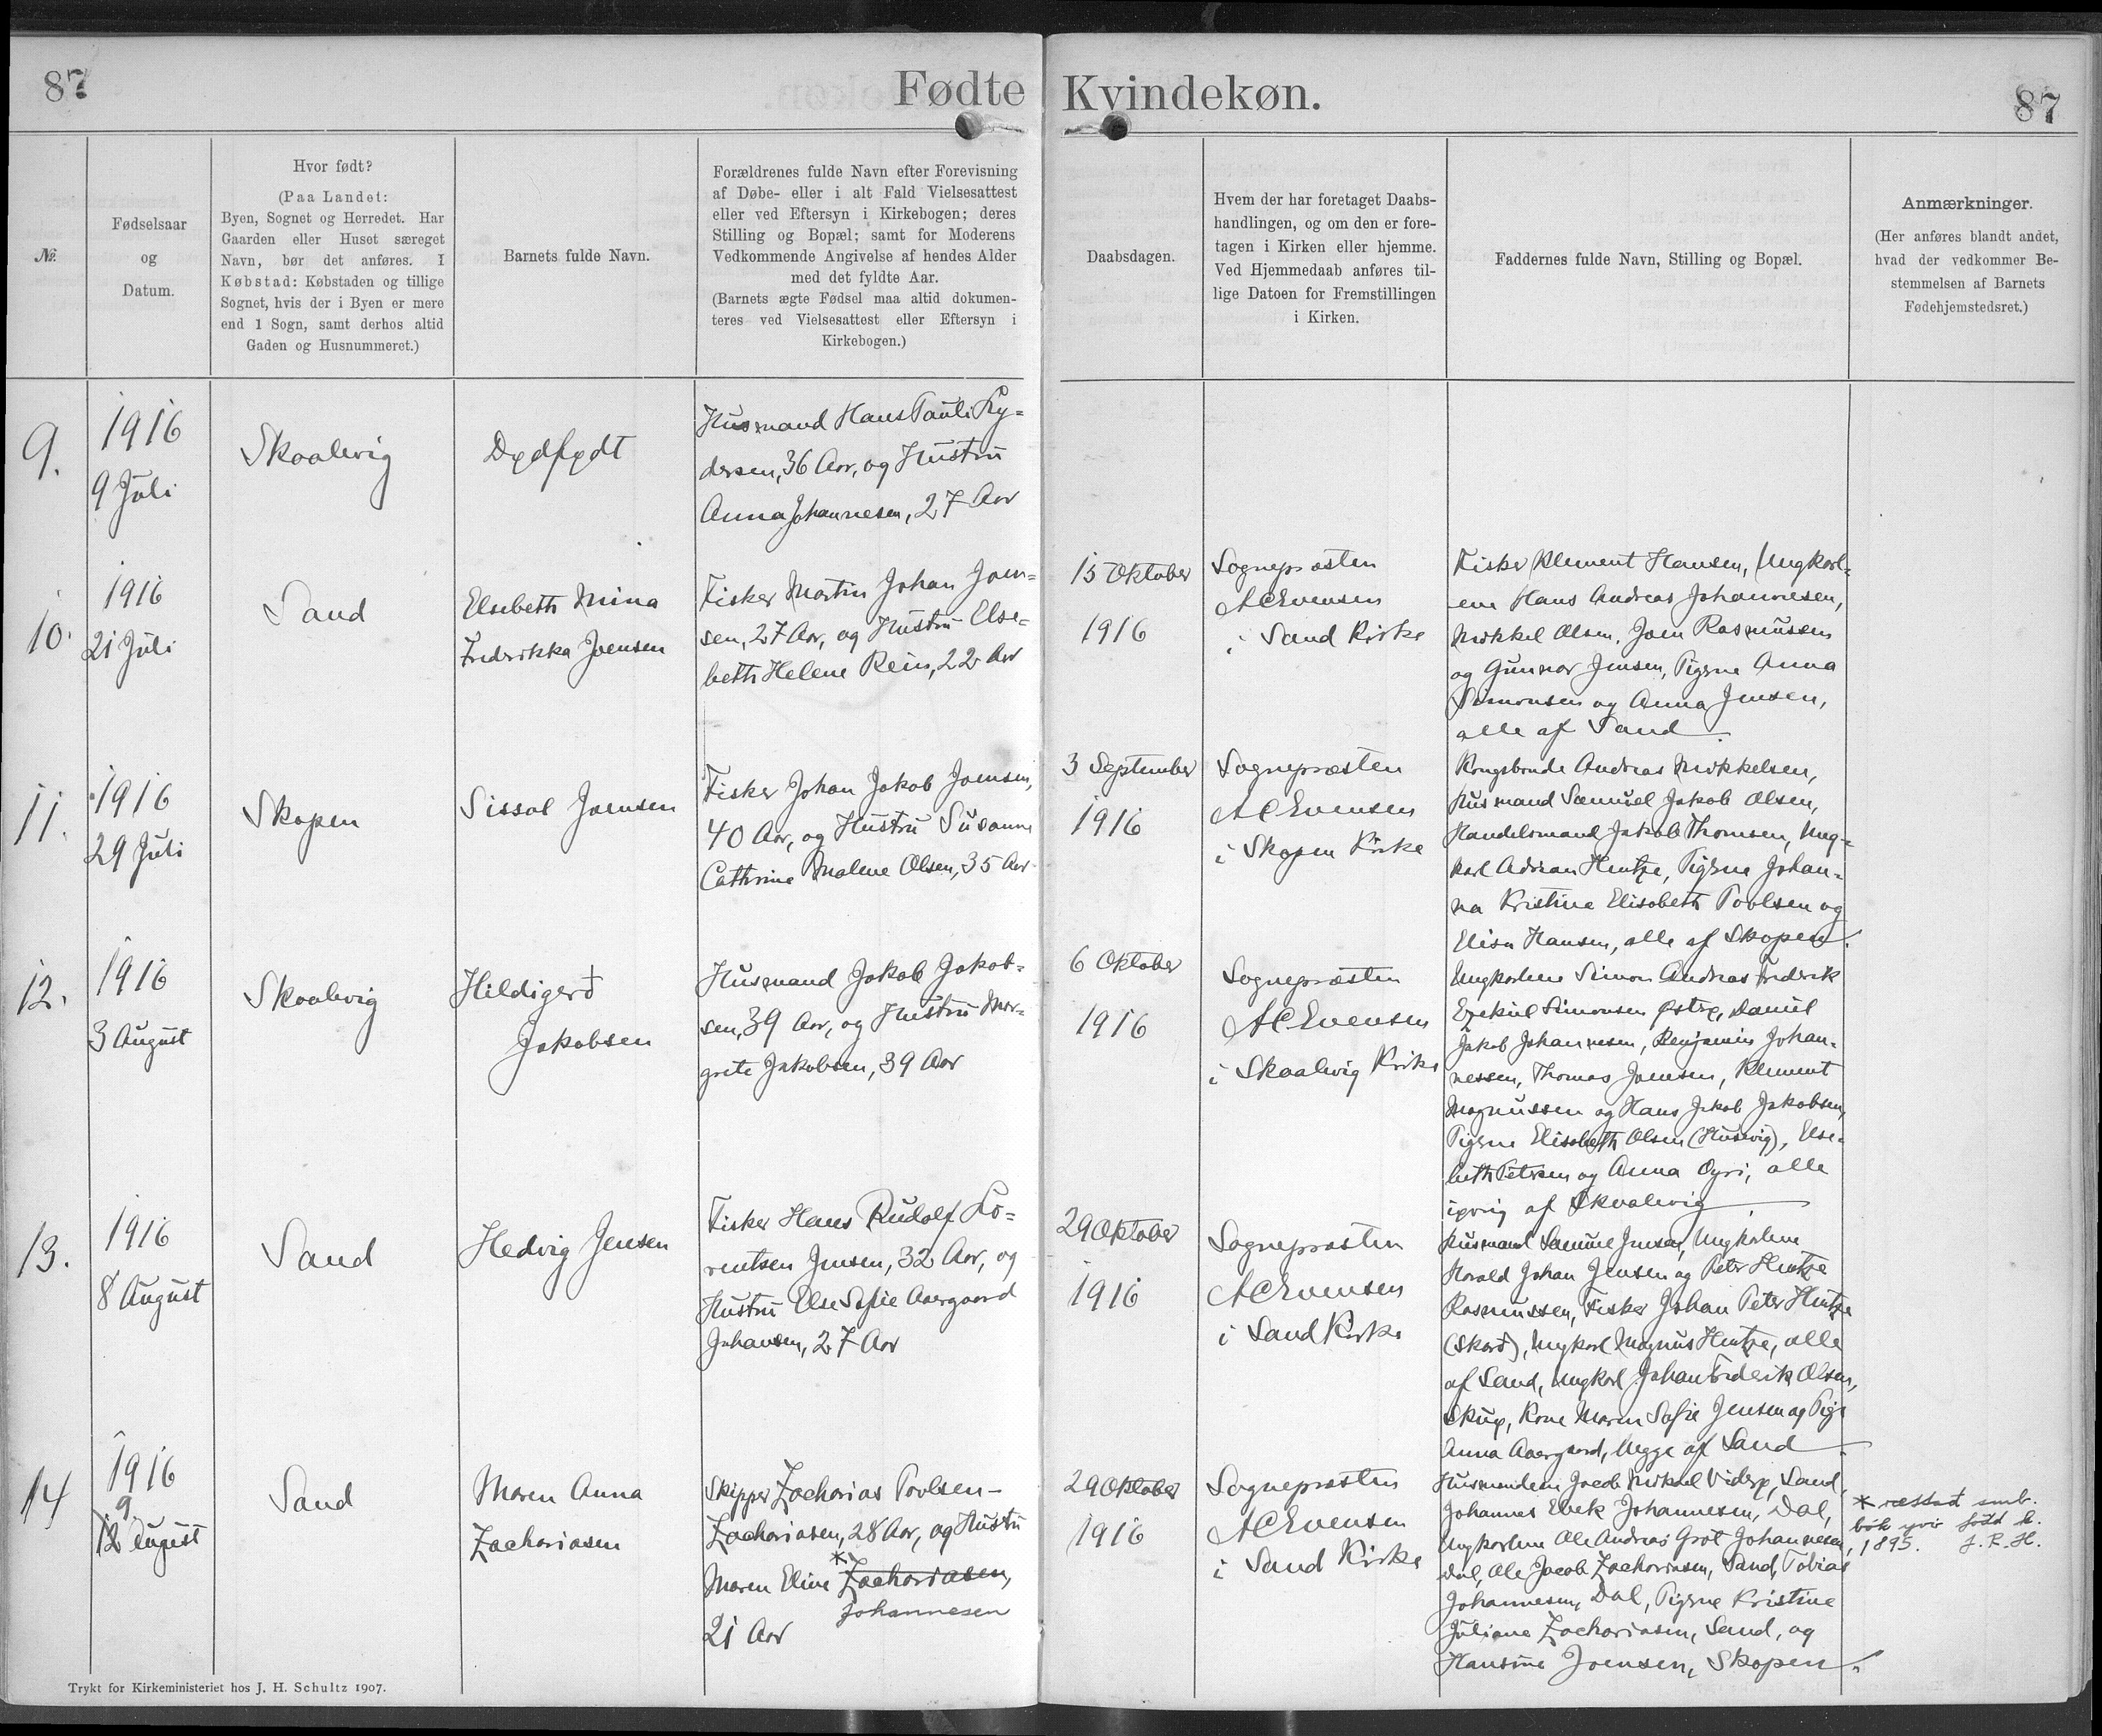 87
Fødte Kvindekøn.
87
№
Fødselsaar
og
Datum.
Hvor født?
(Paa Landet:
Byen, Sognet og Herredet. Har
Gaarden eller Huset særeget
Navn, bør det anføres. I
Købstad: Købstaden og tillige
Sognet, hvis der i Byen er mere
end 1 Sogn, samt derhos altid
Gaden og Husnummeret.)
Barnets fulde Navn.
Forældrenes fulde Navn efter Forevisning
af Døbe- eller i alt Fald Vielsesattest
eller ved Eftersyn i Kirkebogen; deres
Stilling og Bopæl; samt for Moderens
Vedkommende Angivelse af hendes Alder
med det fyldte Aar.
(Barnets ægte Fødsel maa altid dokumen-
teres ved Vielsesattest eller Eftersyn i
Kirkebogen.)
Daabsdagen.
Hvem der har foretaget Daabs-
handlingen, og om den er fore-
tagen i Kirken eller hjemme.
Ved Hjemmedaab anføres til-
lige Datoen for Fremstillingen
i Kirken.
Faddernes fulde Navn, Stilling og Bopæl.
Anmærkninger.
(Her anføres blandt andet,
hvad der vedkommer Be-
stemmelsen af Barnets
Fødehjemstedsret.)
9.
1916
9 Juli
Skaalvig
Dødfødt
Husmand Hans Pauli Ly=
dersen, 36 Aar, og Hustru
Anna Johannesen, 27 Aar
10.
1916
21 Juli
Sand
Elsebeth Mina
Fredrikka Joensen
Fisker Martin Johan Joen=
sen, 27 Aar, og Hustru Else=
beth Helene Rein, 22 Aar
15 Oktober
1916
Sognepræsten
A C Evensen
i Sand Kirke
Fisker Klement Hansen, Ungkarl=
ene Hans Andreas Johannesen,
Mikkel Olsen, Joen Rasmussen
og Gunnar Jensen, Pigerne Anna
Simonsen og Anna Jensen,
alle af Sand.
11.
1916
29 Juli
Skopen
Sissal Joensen
Fisker Johan Jakob Joensen,
40 Aar, og Hustru Susanne
Cathrine Malene Olsen, 35 Aar
3 September
1916
Sognepræsten
A C Evensen
i Skopen Kirke
Kongsbonde Andreas Mikkelsen,
Husmand Samuel Jakob Olsen,
Handelsmand Jakob Thomsen, Ung=
karl Adrian Hentze, Pigerne Johan=
na Kristine Elisabeth Poulsen og
Elisa Hansen, alle af Skopen.
12.
1916
3 August
Skaalvig
Hildigerð
Jakobsen
Husmand Jakob Jakob=
sen, 39 Aar, og Hustru Mar=
grete Jakobsen, 39 Aar
6 Oktober
1916
Sognepræsten
A C Evensen
i Skaalvig Kirke
Ungkarlene Simon Andreas Fredrik
Ezekiel Simonsen Østrø, Daniel
Jakob Johannesen, Benjamin Johan=
nessen, Thomas Joensen, Klement
Magnussen og Hans Jakob Jakobsen,
Pigerne Elisabeth Olsen (Husevig), Else=
beth Petersen og Anna Oyri, alle
iøvrig af Skaalevig.
13.
1916
8 August
Sand
Hedvig Jensen
Fisker Hans Rudolf Lo=
rentsen Jensen, 32 Aar, og
Hustru Else Sofie Aaergaard
Johansen, 27 Aar
29 Oktober
1916
Sognepræsten
A C Evensen
i Sand Kirke
Husmand Samuel Jensen, Ungkarlene
Harald Johan Jensen og Peter Hentze
Rasmussen, Fisker Johan Peter Hentze
(Skarð), Ungkarl Magnus Hentze, alle
af Sand, Ungkarl Johan Fredrik Olsen,
Skuø, Kone Maren Sofie Jensen og Pige
Anna Aaergaard, begge af Sand.
14
1916
9
12 August
Sand
Maren Anna
Zachariasen
Skipper Zacharias Poulsen
Zachariasen, 28 Aar, og Hustru
Maren Eline * Zachariasen,
Johannesen
21 Aar
29 Oktober
1916
Sognepræsten
A C Evensen
i Sand Kirke
Husmændene Jacob Mikkel Viderø, Sand,
Johannes Ebek Johannesen, Dal,
Ungkarlene Ole Andreas Grót Johannesen,
Dal, Ole Jacob Zachariasen, Sand, Tobias
Johannesen, Dal, Pigerne Kristine
Juliane Zachariasen, Sand, og
Hansine Joensen, Skopen.
* rættað smb.
bók yvir fødd k.
1895. J.R.H.
Trykt for Kirkeministeriet hos J. H. Schultz 1907.